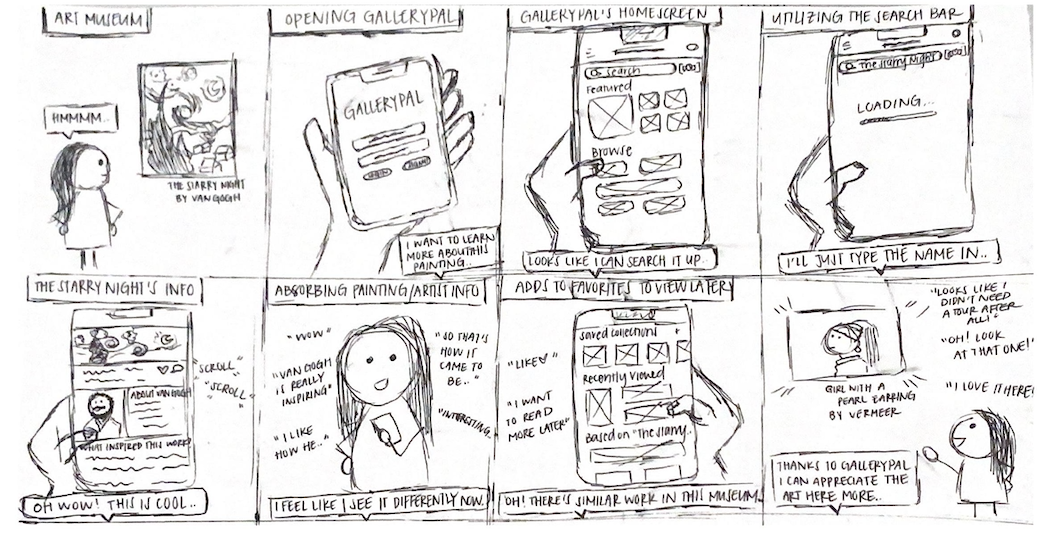 ART MUSEUM
HMMMM..
THE STARRY NIGHT
BY VAN GOGH
OPENING GALLERYPAL
GALLERYPAL
I WANT TO LEARN
MORE ABOUT THIS
PAINTING..
GALLERYPAL'S HOMESCREEN
Search
Featured
Browse
LOOKS LIKE I CAN SEARCH IT UP..
UTILIZING THE SEARCH BAR
The Starry Night
LOADING...
I'LL JUST TYPE THE NAME IN..
THE STARRY NIGHT'S INFO
ABOUT VAN GOGH
WHAT INSPIRED THIS WORK?
"SCROLL"
"SCROLL"
OH WOW! THIS IS COOL..
ABSORBING PAINTING/ARTIST INFO
"WOW"
"VAN GOGH
IS REALLY
INSPIRING"
"I LIKE
HOW HE.."
"SO THAT'S
HOW IT
CAME TO
BE.."
"INTERESTING..
I FEEL LIKE I SEE IT DIFFERENTLY NOW
ADDS TO FAVORITES TO VIEW LATER
Saved collection
+
Recently Viewed
Based on "The Starry..
"LIKE♥"
"I WANT
TO READ
MORE LATER"
OH! THERE'S SIMILAR WORK IN THIS MUSEUM..
"LOOKS LIKE I
DIDN'T NEED
A TOUR AFTER
ALL!"
"OH! LOOK
AT THAT ONE!"
"I LOVE IT HERE!
GIRL WITH A
PEARL EARRING
BY VERMEER
THANKS TO GALLERYPAL
I CAN APPRECIATE THE
ART HERE MORE..